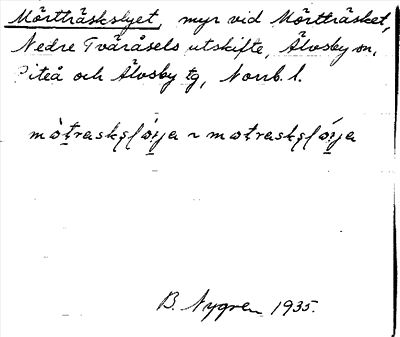 Mörtträskslyet, myr vid Mörtträsket,
Nedre Tväråsels utskifte, Älvsby sn,
Piteå och Älvsby tg, Norrb. l.
B. Nygren 1935.